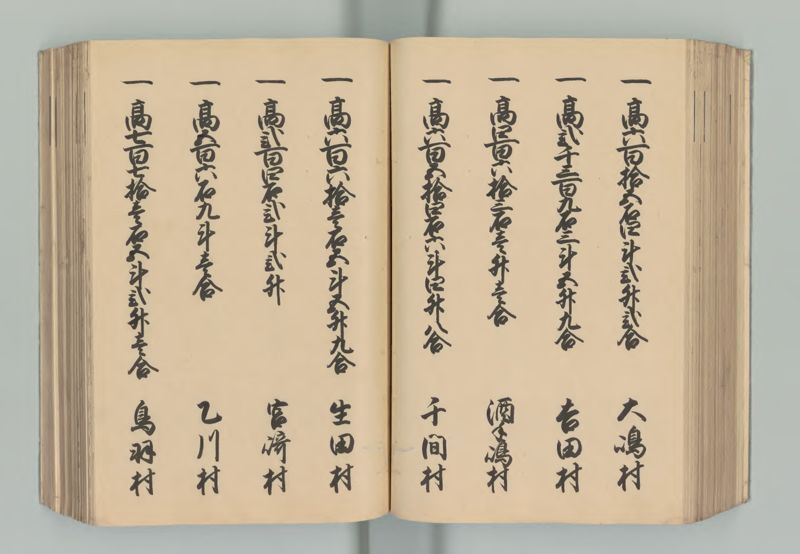 一 高六百拾五石四斗弐升弐合 大嶋村
一 高弐千三百九石三斗五升九合 吉田村
一 高四百六拾三石壱升壱合 酒手嶋村
一 高六百五拾四石六斗四升八合 千間村
一 高六百六拾壱石五斗五升九合 生田村
一 高弐百四石弐斗弐升 宮崎村
一 高五百六石九斗壱合 乙川村
一 高七百七拾壱石五斗弐升壱合 鳥羽村